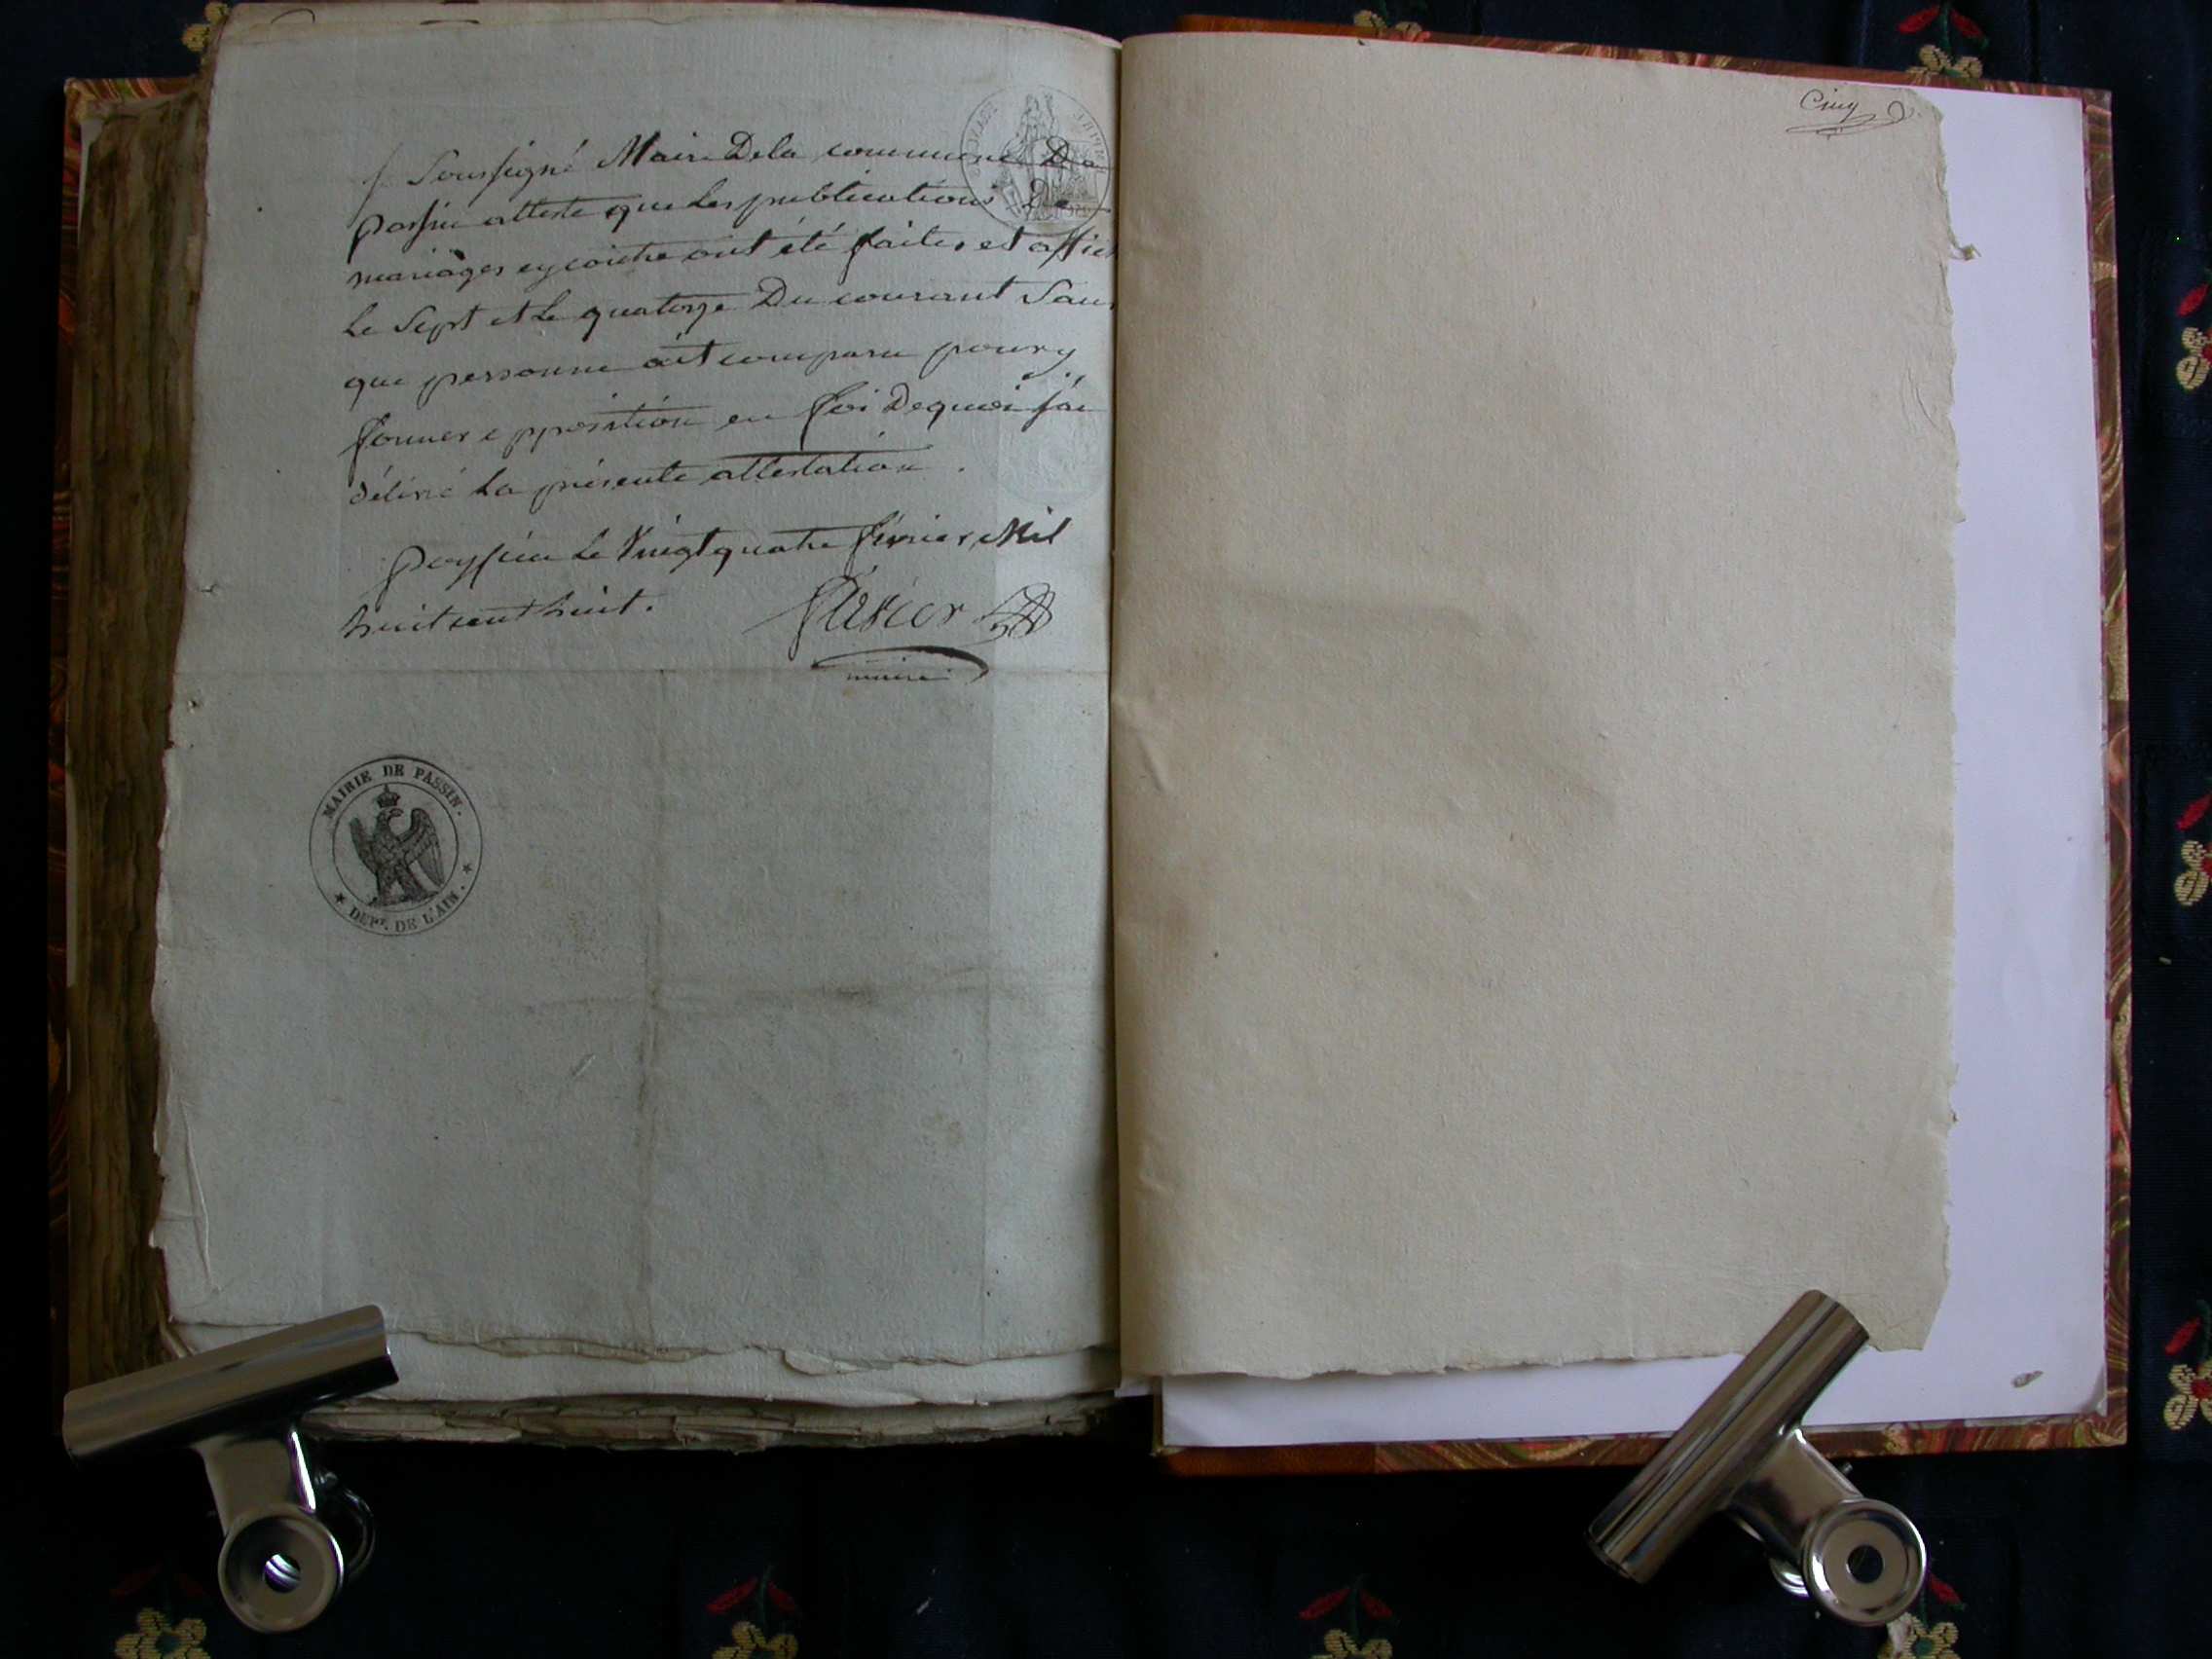 Je Soussigné Maire Dela commune De
passin atteste que les publications De
mariages cy contre ont été faites et affich
le Sept et le quatorze Du courant Sans
que personne ait comparu pour y
former opposition en foi Dequoi j'ai
délivré la présente attestation.
passin le Vingt quatre février Mil
huit cent huit.
maire
MAIRIE DE PASSIN.
DEPT. DE L'AIN.
Cinq